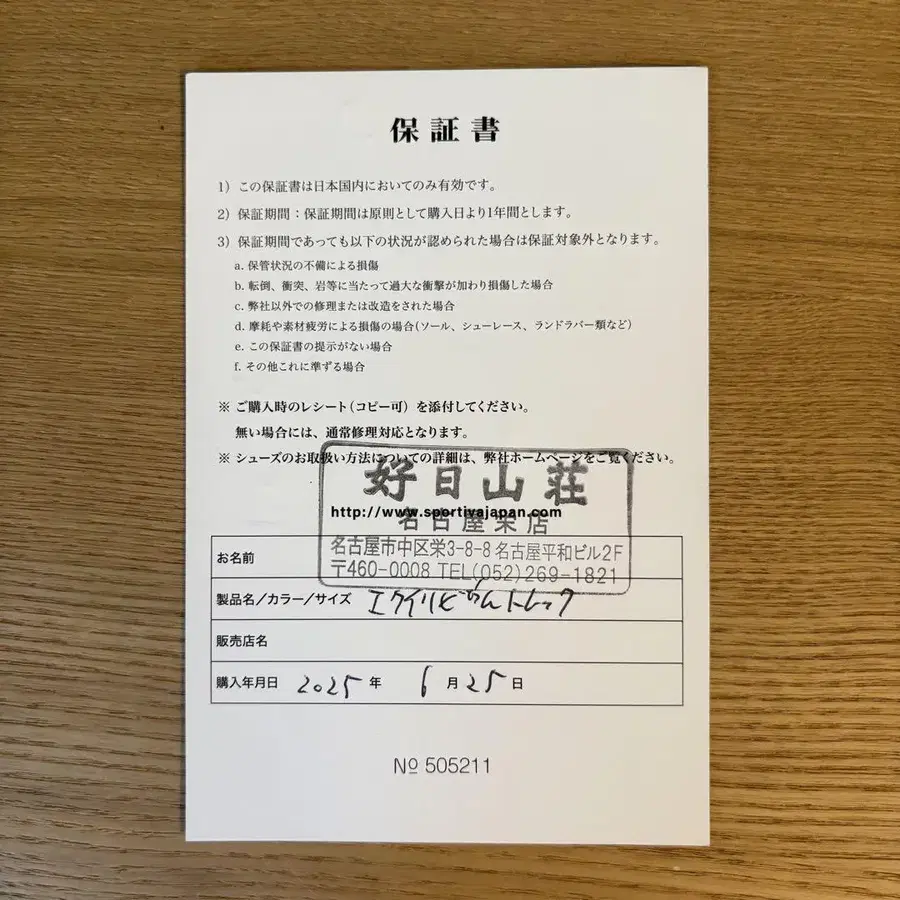 保証書
1）この保証書は日本国内においてのみ有効です。
2）保証期間：保証期間は原則として購入日より1年間とします。
3）保証期間であっても以下の状況が認められた場合は保証対象外となります。
a. 保管状況の不備による損傷
b. 転倒、衝突、岩等に当たって過大な衝撃が加わり損傷した場合
c. 弊社以外での修理または改造をされた場合
d. 摩耗や素材疲労による損傷の場合（ソール、シューレース、ランドラバー類など）
e. この保証書の提示がない場合
f. その他これに準ずる場合
※ ご購入時のレシート（コピー可）を添付してください。
無い場合には、通常修理対応となります。
※ シューズのお取扱い方法についての詳細は、弊社ホームページをご覧ください。
好日山荘
http://www.sportivajapan.com
名古屋栄店
名古屋市中区栄3-8-8 名古屋平和ビル2F
〒460-0008 TEL(052)269-1821
お名前
製品名／カラー／サイズ エクイリビウムトレック
販売店名
購入年月日 2025 年 6 月 25 日
№ 505211